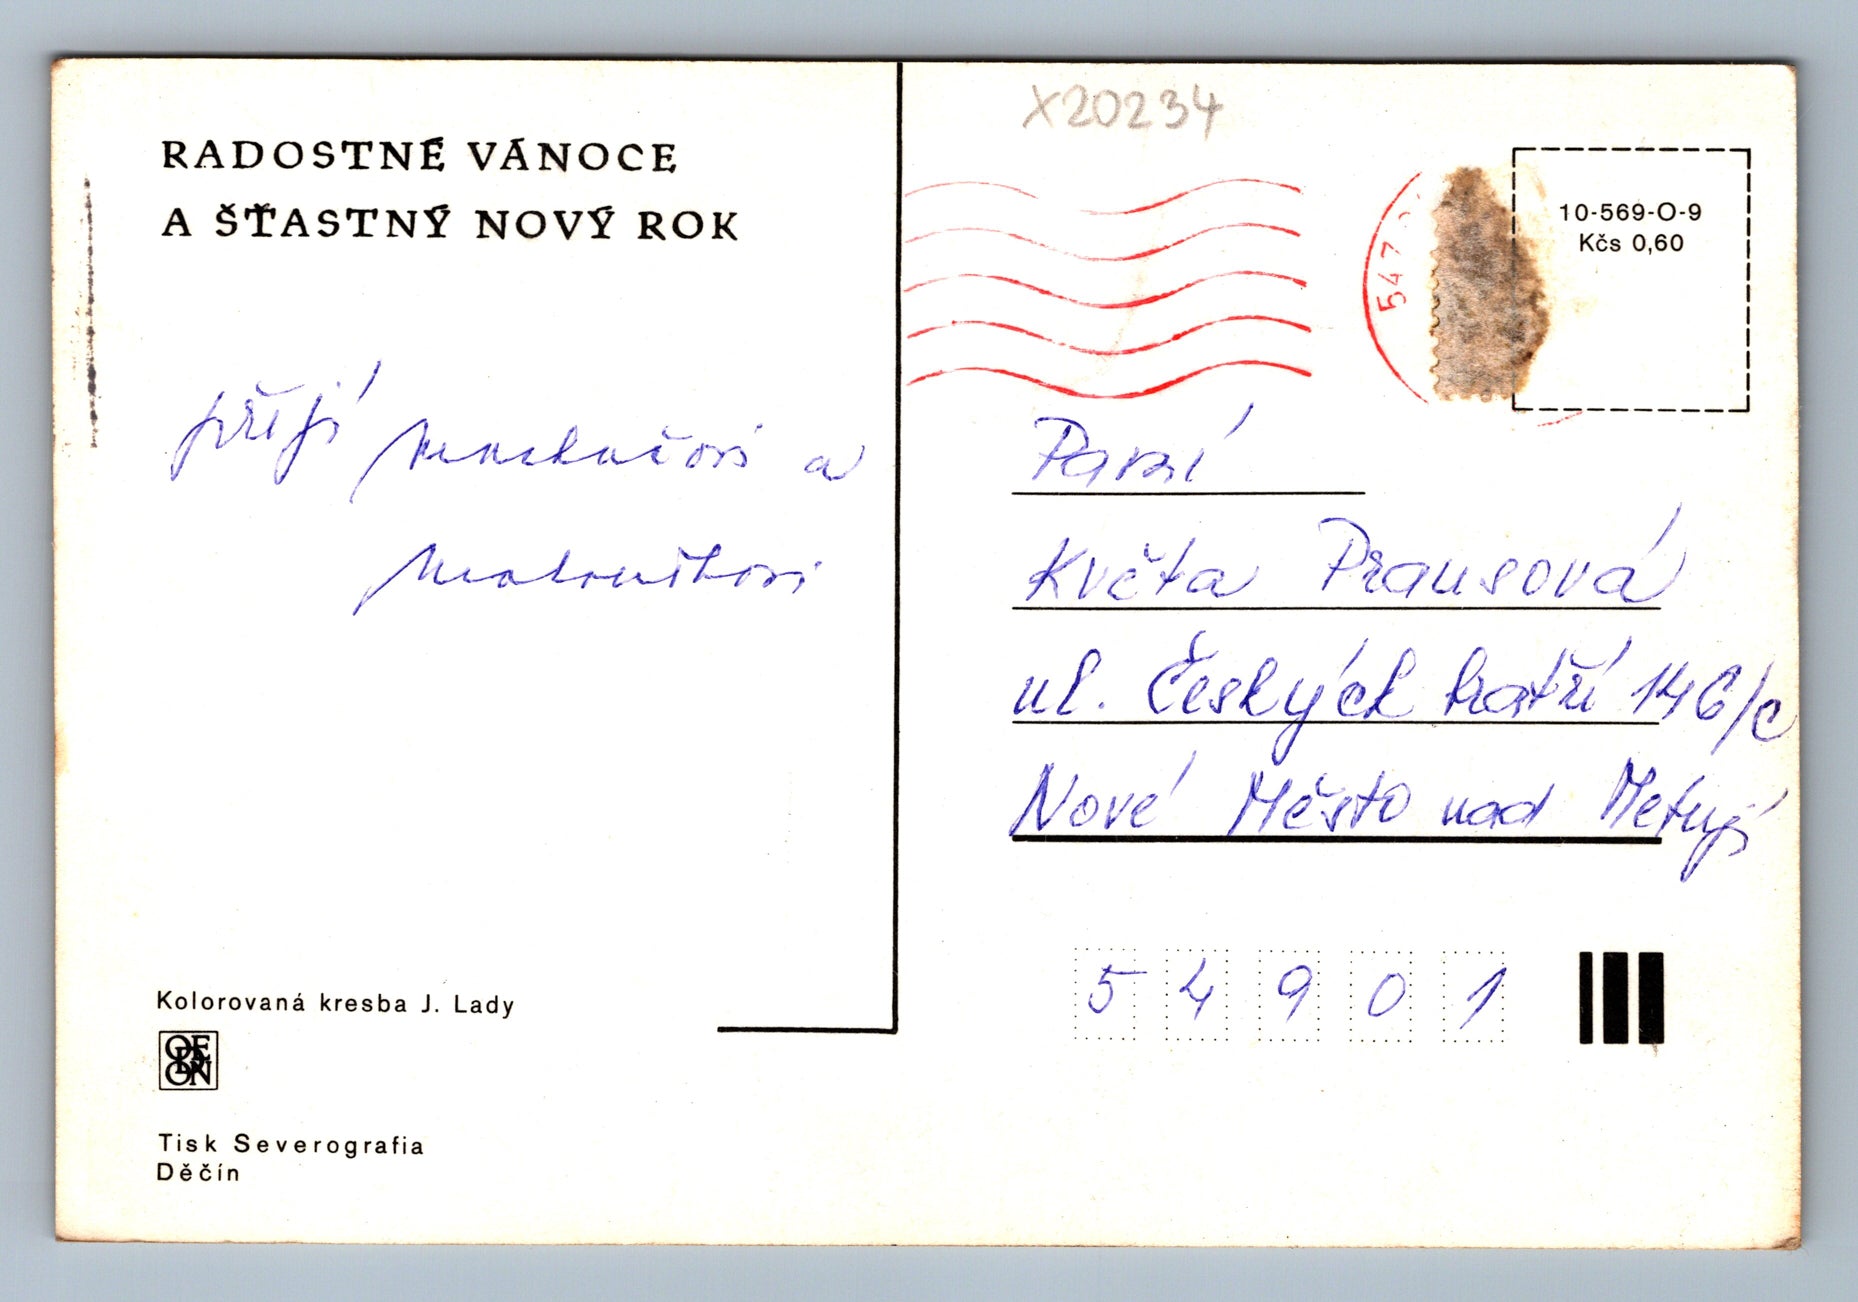 X20234
RADOSTNÉ VÁNOCE
A ŠŤASTNÝ NOVÝ ROK
547
10-569-O-9
Kčs 0,60
přejí a
Paní
Květa Prausová
ul. Českých bratří 146/c
Nové Město nad Metují
54901
Kolorovaná kresba J. Lady
ODEON
Tisk Severografia
Děčín